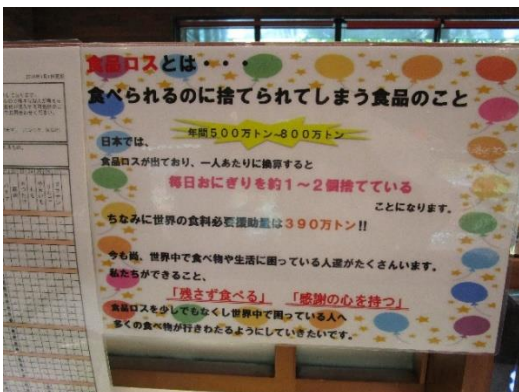 食品ロスとは・・・
食べられるのに捨てられてしまう食品のこと
年間500万トン~800万トン
日本では、
食品ロスが出ており、一人あたりに換算すると
毎日おにぎりを約1~2個捨てている
ことになります。
ちなみに世界の食料必要援助量は390万トン!!
今も尚、世界中で食べ物や生活に困っている人達がたくさんいます。
私たちができること、
「残さず食べる」 「感謝の心を持つ」
食品ロスを少しでもなくし世界中で困っている人へ
多くの食べ物が行きわたるようにしていきたいです。